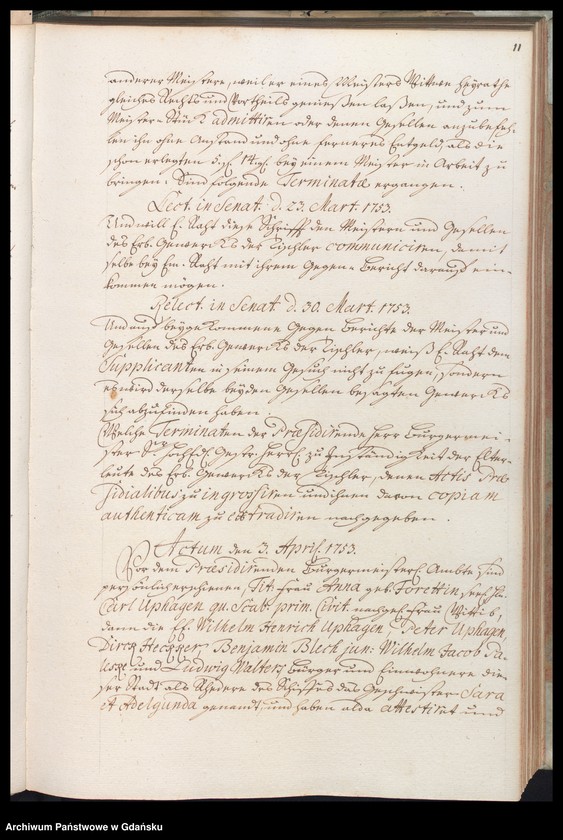 11
anderer Meistere, weil er eines Meisters Wittwe heyrathe
gleiches Rechts und Vortheils geniessen lassen, und zum
Meister-Stück admittiren oder denen Gesellen anzubefeh-
len ihn ohne Anstand und ohne ferneres Entgeld, als die
schon erlegten bey einem Meister in Arbeit zu
bringen. Sind folgende Terminata ergangen.
Lect. in Senat. d. 23. Mart. 1753.
Und will E. Raht diese Schrifft den Meistern und Gesellen
des Erb. Gewercks der Tischler communiciren, damit
selbe bey Em. Raht mit ihrem Gegen-Bericht darauf ein-
kommen mögen.
Relect. in Senat. d. 30. Mart. 1753.
Und auf beygekommene Gegen Berichte der Meister und
Gesellen des Erb. Gewercks der Tischler, weiß E. Raht dem
Supplicanten in seinem Gesuch nicht zu fugen, sondern
es wird derselbe beyden Gesellen besagten Gewercks
sich abzufinden haben.
Welche Terminaten der Præsidirende Herr Burgermei-
ster zu der Elter-
leute des Erb. Gewercks der Tischler, denen Actis Præ-
sidialibus zu ingrossiren und ihnen davon copiam
authenticam zu extradiren nachgegeben.
Actum den 3. April. 1753.
Vor dem Præsidirenden Bürgermeisterl. Ambte sind
persönlich erschienen, Tit. Frau Anna geb. Forettin, seel. Hn.
Carl Uphagen qu. Scab. prim. Civit. nachgel. Frau Wittib,
dann die HH. Wilhelm Henrich Uphagen, Peter Uphagen,
Dircq Hecgger, Benjamin Blech jun: Wilhelm Jacob Pa-
leske und Ludwig Walters Bürger und Einwohnere die-
ser Stadt als Rhedere des Schiffes das Geschwister Sara
et Adelgunda genandt, und haben alda attestiret und
Archiwum Państwowe w Gdańsku